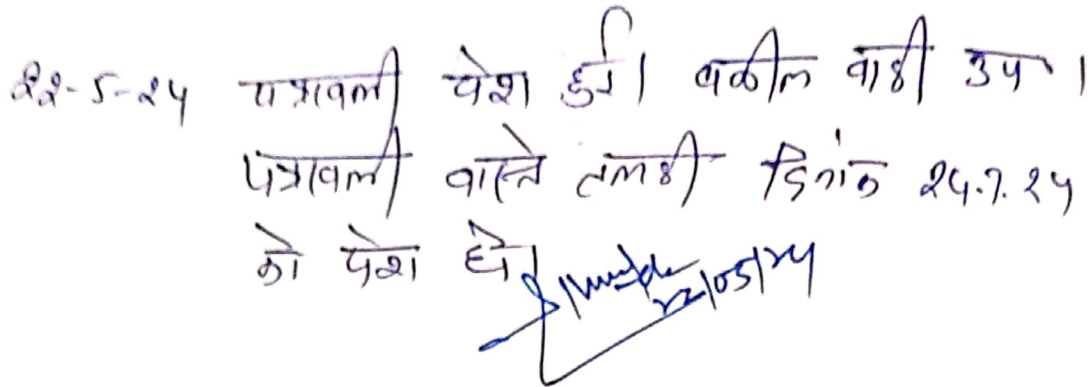 २२-५-२४ पत्रावली पेश हुई। वकील वादी उप।
पत्रावली वास्ते तलबी दिनांक २५.७.२४
को पेश हो।
22/05/24